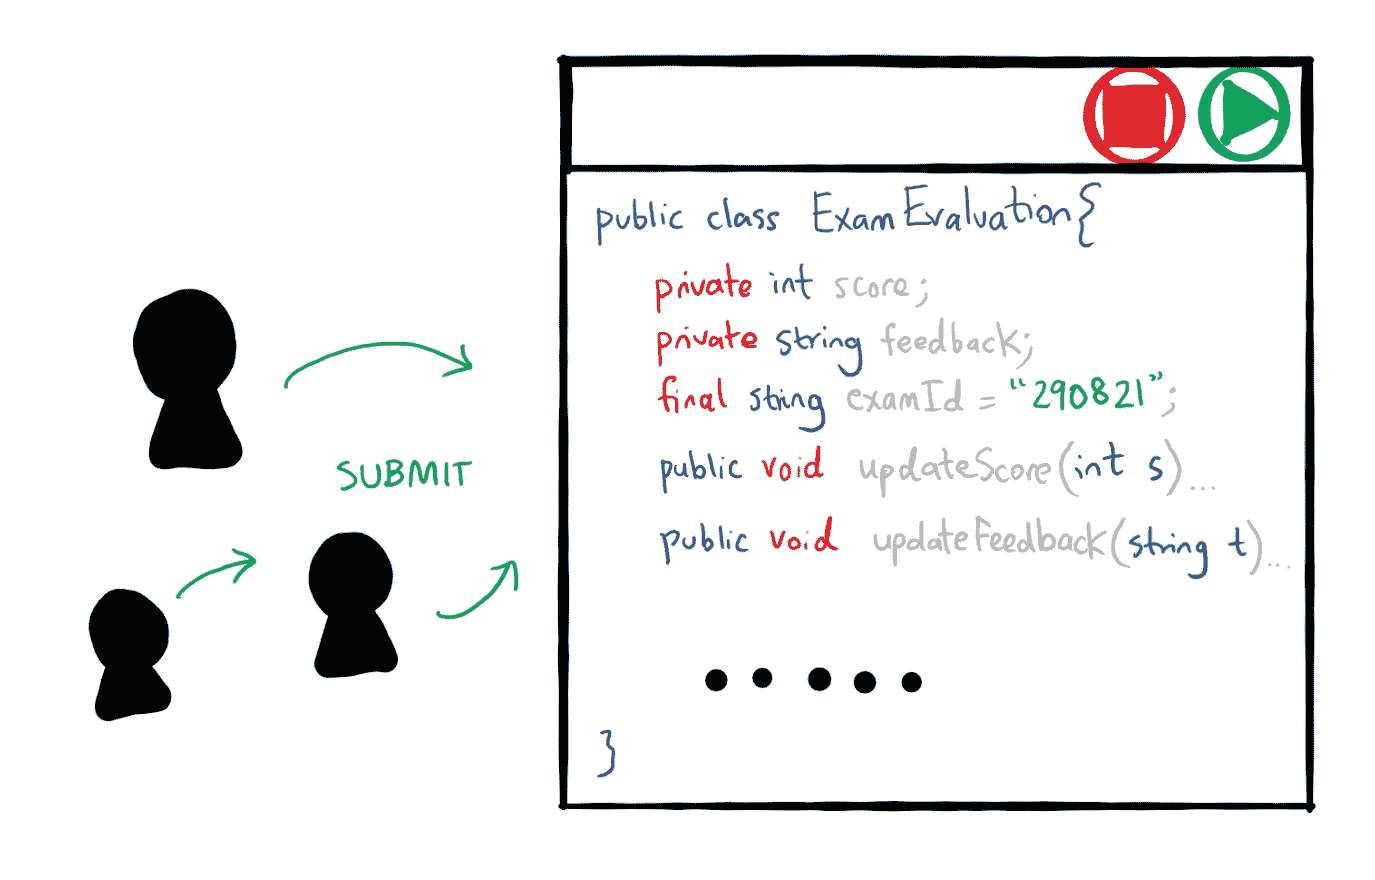 SUBMIT
public class ExamEvaluation{
private int score;
private string feedback;
final string examId = "290821";
public void updateScore(int s)...
public void updateFeedback(string t)...
.....
}